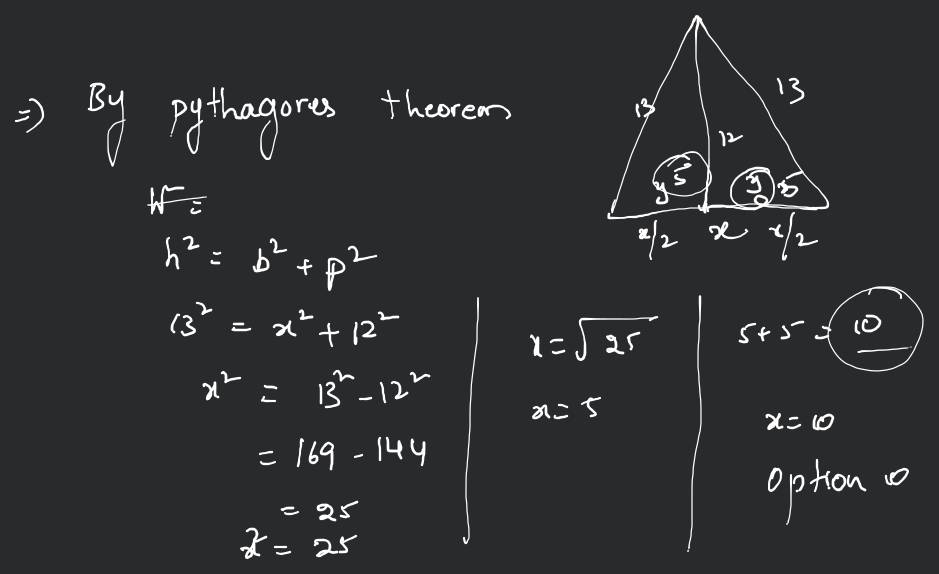 ⇒) By pythagores theorem
h² = b² + p²
13² = x² + 12²
x² = 13² - 12²
= 169 - 144
= 25
x² = 25
x = √25
x = 5
5 + 5 = 10
x = 10
option 10
13
13
12
y 5
y 5
x/2 x x/2